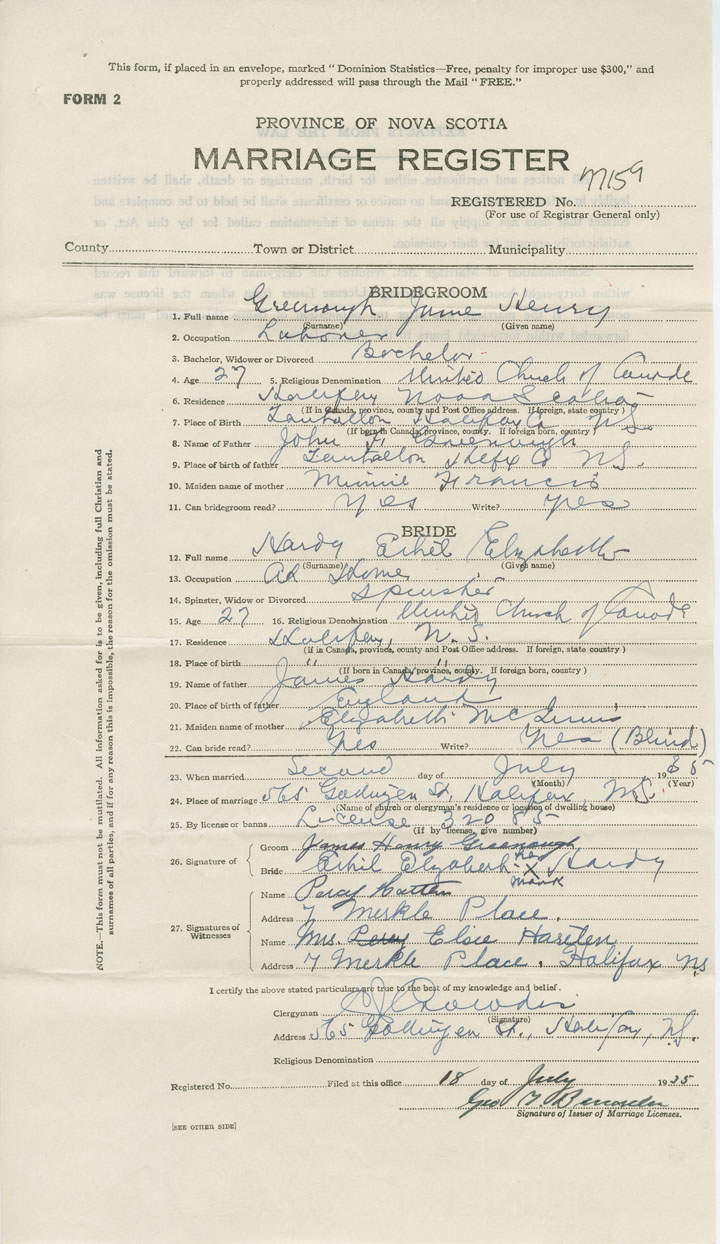 This form, if placed in an envelope, marked " Dominion Statistics—Free, penalty for improper use $300," and
properly addressed will pass through the Mail " FREE."
FORM 2
PROVINCE OF NOVA SCOTIA
MARRIAGE REGISTER
REGISTERED No. M159
(For use of Registrar General only)
County Town or District Municipality
BRIDEGROOM
1. Full name Greenough Jame Henry
(Surname) (Given name)
2. Occupation Laborer
3. Bachelor, Widower or Divorced Bachelor
4. Age 27 5. Religious Denomination United Church of Canada
6. Residence Halifax Nova Scotia
(If in Canada, province, county and Post Office address. If foreign, state country )
7. Place of Birth Tantallon Halifax Co N.S.
(If born in Canada, province, county. If foreign born, country )
8. Name of Father John H Greenough
9. Place of birth of father Tantallon Hlfx Co N.S.
10. Maiden name of mother Minnie Francis
11. Can bridegroom read? Yes Write? yes
BRIDE
12. Full name Hardy Ethel Elizabeth
(Surname) (Given name)
13. Occupation At Home
14. Spinster, Widow or Divorced Spinster
15. Age 27 16. Religious Denomination United Church of Canada
17. Residence Halifax, N.S.
(If in Canada, province, county and Post Office address. If foreign, state country )
18. Place of birth " "
(If born in Canada, province, county. If foreign born, country )
19. Name of father James Hardy
20. Place of birth of father England
21. Maiden name of mother Elizabeth McInnis
22. Can bride read? Yes Write? Yes (Blind)
23. When married Second day of July 1935
(Month) (Year)
24. Place of marriage 565 Gottingen St, Halifax, N.S.
(Name of church or clergyman's residence or location of dwelling house)
25. By license or banns License 32085
(if by license, give number)
26. Signature of
Groom James Henry Greenough
Bride Ethel Elizabeth her X mark Hardy
27. Signatures of Witnesses
Name Percy
Address 7 Merkle Place.
Name Mrs. Percy Elsie
Address 7 Merkle Place, Halifax NS
I certify the above stated particulars are true to the best of my knowledge and belief.
Clergyman
(Signature)
Address 565 Gottingen St., Halifax, N.S.
Religious Denomination
Registered No. Filed at this office 18 day of July 1935
Geo
Signature of Issuer of Marriage Licenses.
[SEE OTHER SIDE]
NOTE.—This form must not be mutilated. All information asked for is to be given, including full Christian and
surnames of all parties, and if for any reason this is impossible, the reason for the omission must be stated.